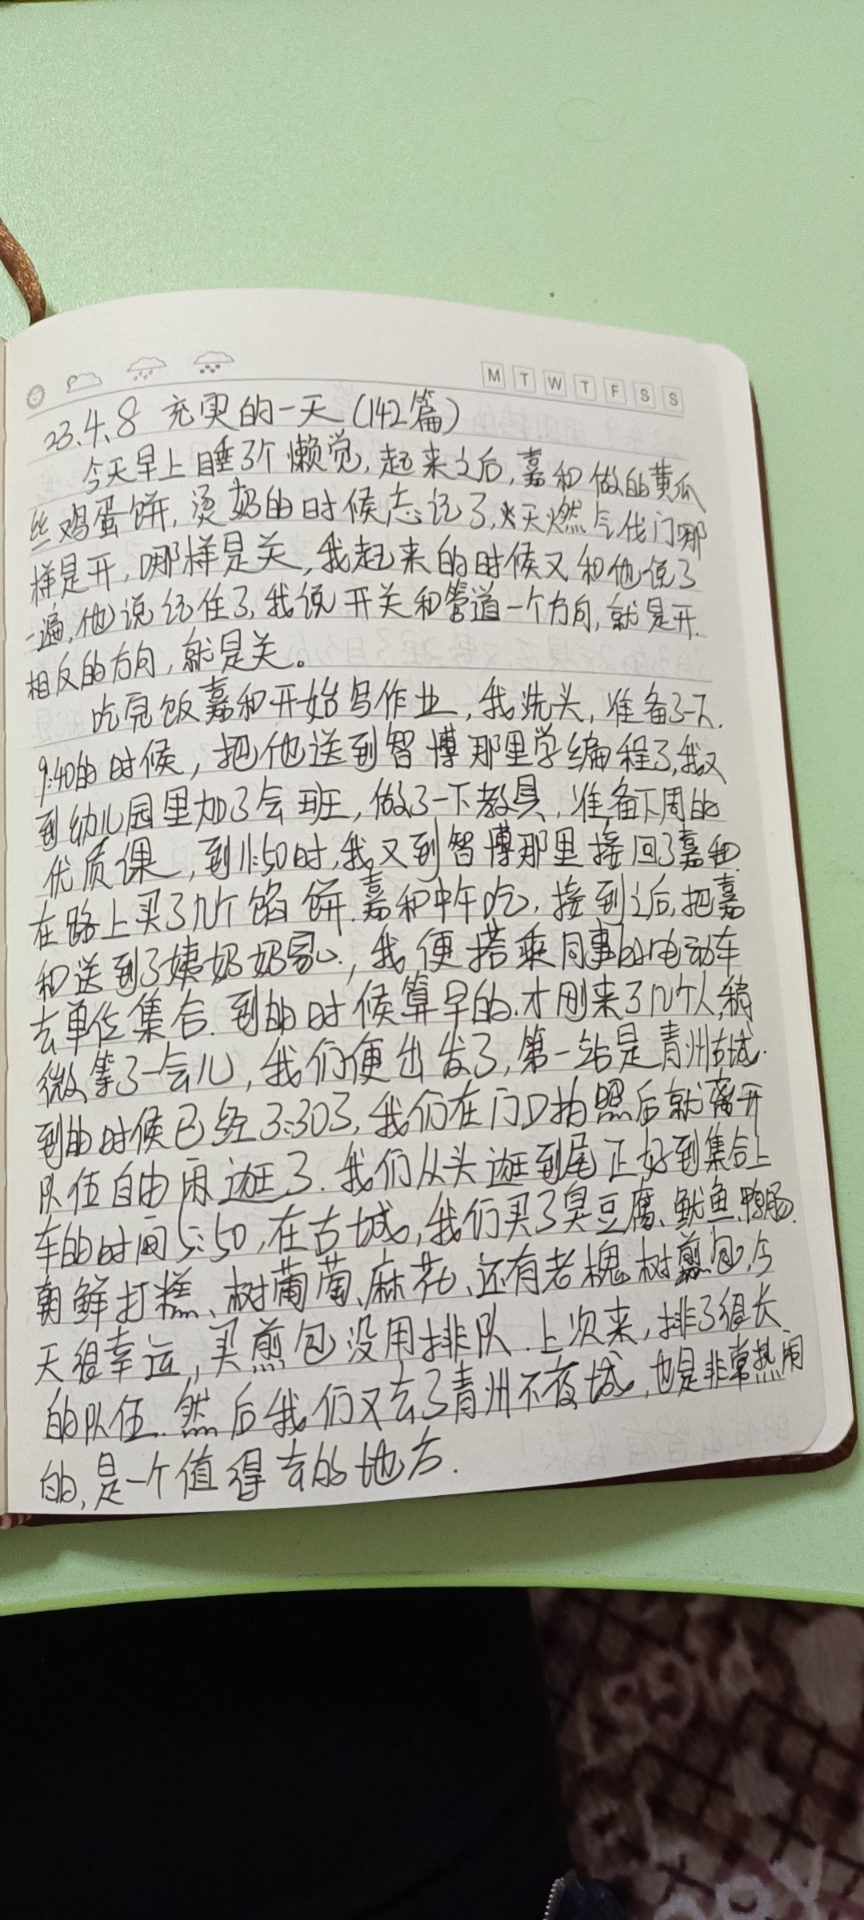 M T W T F S S
23.4.8 充实的一天(142篇)
今天早上睡了个懒觉,起来之后,嘉和做的黄瓜
丝鸡蛋饼,烫奶的时候忘记了,天燃气伐门哪
样是开,哪样是关,我起来的时候又和他说了
一遍,他说记住了,我说开关和管道一个方向,就是开.
相反的方向,就是关。
吃完饭嘉和开始写作业,我洗头,准备了一下.
9:40的时候,把他送到智博那里学编程了,我又
到幼儿园里加了会班,做了一下教具,准备下周的
优质课,到11:50时,我又到智博那里接回了嘉和.
在路上买了几个馅饼.嘉和中午吃,接到之后,把嘉
和送到了姨奶奶家,我便搭乘同事的电动车
去单位集合.到的时候算早的.才刚来了几个人,稍
微等了一会儿,我们便出发了,第一站是青州古城.
到的时候已经3:30了,我们在门口拍照后就离开
队伍自由闲逛了.我们从头逛到尾正好到集合上
车的时间5:50,在古城,我们买了臭豆腐、鱿鱼、鸭肠.
朝鲜打糕、树葡萄、麻花、还有老槐树煎包,今
天很幸运,买煎包没用排队.上次来,排了很长
的队伍.然后我们又去了青州不夜城,也是非常热闹
的,是一个值得去的地方.